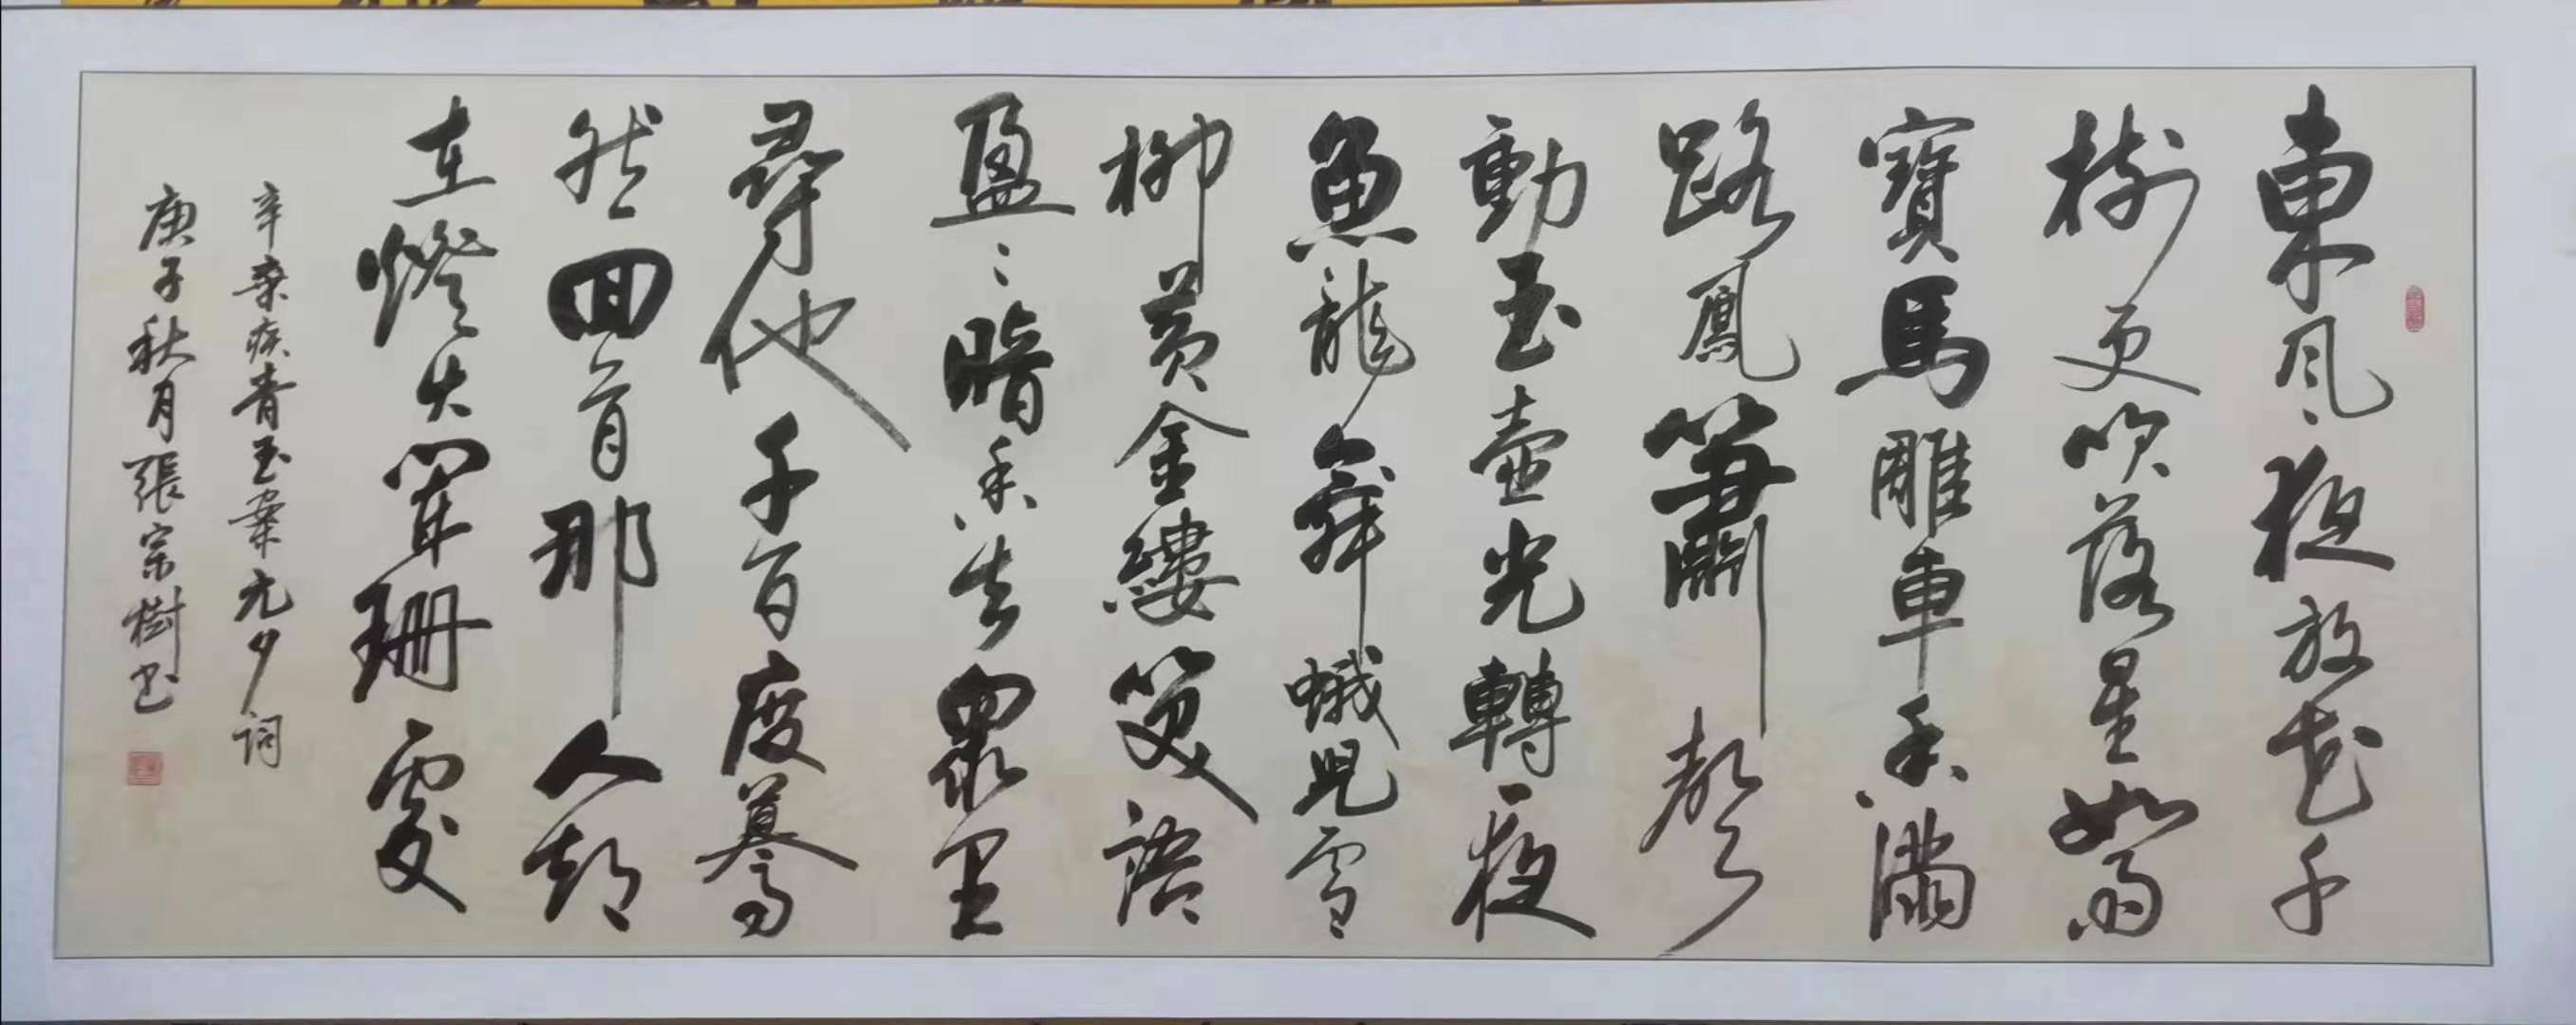 東風夜放花千
樹更吹落星如雨
寶馬雕車香滿
路鳳簫聲
動玉壺光轉一夜
魚龍舞蛾兒雪
柳黃金縷笑語
盈〻暗香去眾里
尋他千百度驀
然回首那人却
在燈火闌珊處
辛棄疾青玉案元夕詞
庚子秋月張宗樹书